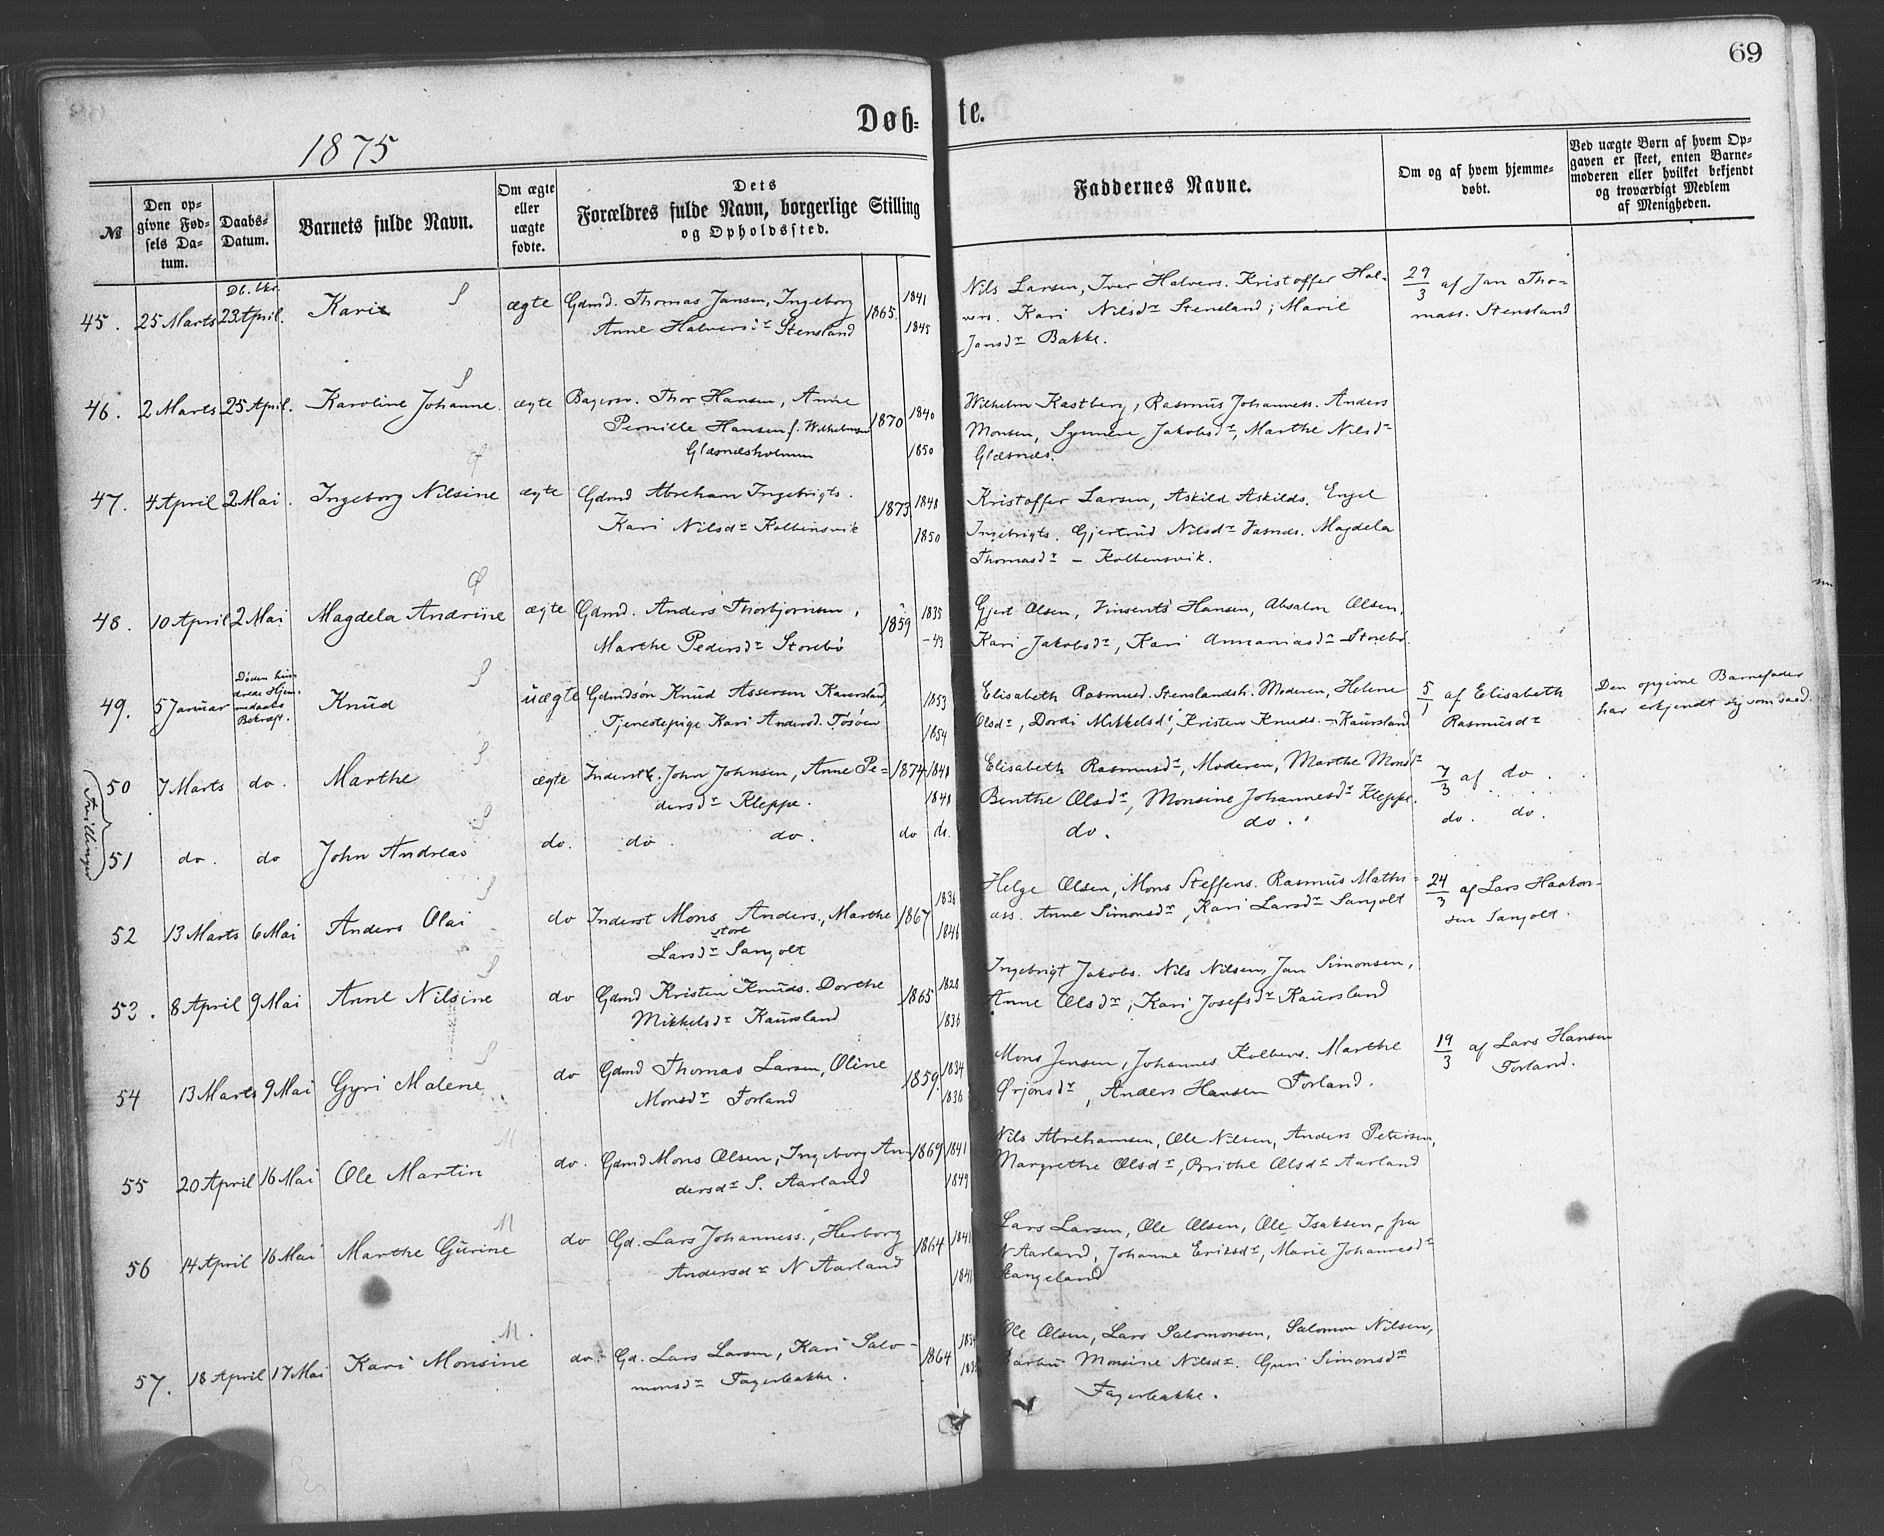 69
Døb- te.
1875
№
Den opgivne Fødsels Datum.
Daabs-Datum.
Barnets fulde Navn.
Om ægte eller uægte fødte.
Dets Forældres fulde Navn, borgerlige Stilling og Opholdssted.
Faddernes Navne.
Om og af hvem hjemmedøbt.
Ved uægte Børn af hvem Opgaven er skeet, enten Barnemoderen eller hvilket bekjendt og troværdigt Medlem af Menigheden.
45. 25 Marts 23 April. Karie S ægte Gdmd. Thomas Jansen, Ingeborg 1865. 1841 Nils Larsen, Iver Halvers. Kristoffer Hal- 29/3 af Jan Tho-
Anne Halversdr Stensland 1845 vers. Kari Nilsdr Stensland; Marie mass. Stensland
Jansdr Bakke.
46. 2 Marts 25 April. Karoline Johanne. S ægte Thor Hansen, Anne 1870 1840 Wilhelm Kastberg, Rasmus Johanness. Anders
Pernille Hansen f. Wilhelmsen 1850 Monsen, Synneve Jakobsdr, Marthe Nilsdr
Glæsnæsholmen Glæsnæs.
47. 4 April 2 Mai. Ingeborg Nilsine ægte Gdmd Abraham Ingebrigts. 1873 1848 Kristoffer Larsen, Askild Askilds. Engel
Kari Nilsdr Kolbensvik 1850 Ingebrigts. Gjertrud Nilsdr Magdela
Thomasdr - Kolbensvik.
48. 10 April 2 Mai Magdela Andrine ægte Gdmd. Anders Thorbjørnsen, 1859 1835 Gjert Olsen, Vinsents Hansen, Absalon Olsen,
Marthe Pedersdr Storebø -43 Kari Jakobsdr, Kari Annaniasdr Storebø.
49. 5 Januar Døden hindrede Hjemmedaabs Bekræft. Knud S uægte Gdmdsøn Knud Assersen Kaursland, 1853 Elisabeth Rasmusd. Stenslandsh. Moderen, Helene 5/1 af Elisabeth Den opgivne Barnefader
Tjenestepige Kari Andersd. Tøsøen 1854 Olsdr, Dordi Mikkelsdr, Kristen Knuds. - Kaursland Rasmusdr har erkjendt sig som saad.
Tvillinger
50 7 Marts do. Marthe S ægte Inderst. John Johnsen, Anne Pe- 1874 1848 Elisabeth Rasmusdr, Moderen, Marthe Monsdr 7/3 af do.
dersdr Kleppe. 1848 Benthe Olsdr, Monsine Johannesdr Kleppe.
51 do. do John Andreas S do. do. do. do do. do. do. do. do.
52 13 Marts 6 Mai Anders Olai S do Inderst Mons Anders., Marthe 1867 1836 Helge Olsen, Mons Steffens. Rasmus Mathi- 24/3 af Lars Haakon-
Larsdr store Sangolt 1846 ass. Anne Simonsdr, Kari Larsdr Sangolt sen Sangolt.
53. 8 April 9 Mai Anne Nilsine S do Gdmd Kristen Knuds. Dorthe 1865 1828 Ingebrigt Jakobs. Nils Nilsen, Jan Simonsen,
Mikkelsdr Kaursland 1836 Anne Olsdr, Kari Josefsdr Kaursland
54 13 Marts 9 Mai Gyri Malene S do Gdmd Thomas Larsen, Oline 1859. 1834 Mons Jensen, Johannes Kolbens. Marthe 19/3 af Lars Hansen
Monsdr Forland 1836 Ørjansdr, Anders Hansen Forland. Forland.
55 20 April 16 Mai Ole Martin M do. Gdmd Mons Olsen, Ingeborg An- 1869 1841 Nils Abrehamsen, Ole Nilsen, Anders Petersen,
dersdr S. Aarland 1849 Margrethe Olsdr, Brithe Olsdr Aarland
56 14 April 16 Mai Marthe Gurine M do Gd. Lars Johanness., Herborg 1864 1841 Lars Larsen, Ole Olsen, Ole Isaksen, fra
Andersdr N Aarland 1841 N Aarland, Johanne Eriksdr, Marie Johannesdr
Stangeland
57. 18 April 17 Mai Kari Monsine M. do. Gd. Lars Larsen, Kari Salo- 1864 Ole Olsen, Lars Salomonsen, Salomon Nilsen,
monsdr Fagerbakke. Monsine Nilsdr. Guri Simonsdr
Fagerbakke.